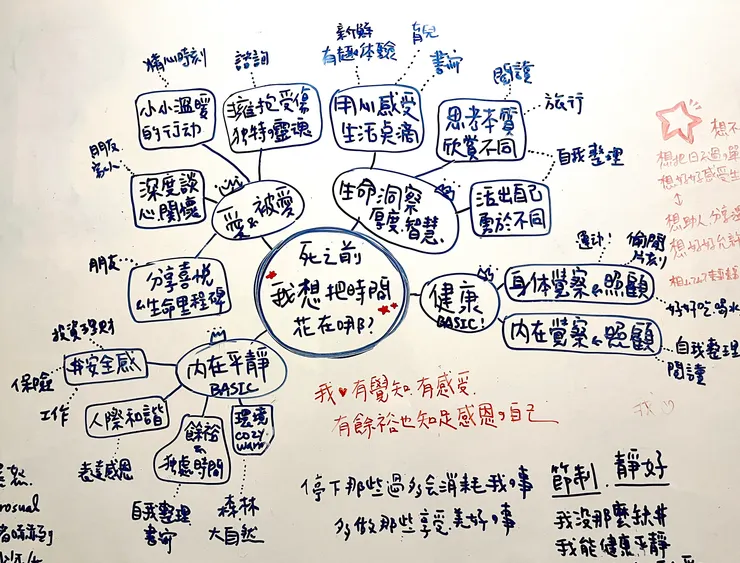 死之前
我想把時間
花在哪?
愛&被愛
小小溫暖
的行动
精心時刻
擁抱受傷
独特の靈魂
諮詢
深度談
心關懷
朋友
分享喜悅
&生命里程碑
朋友
生命洞察
厚度.智慧.
用心感受
生活点滴
新鮮
有趣の体驗
育兒
書寫
思考本質
欣賞不同
閱讀
旅行
自我整理
活出自己
勇於不同
健康
BASIC!
身体覺察&照顧
運动!
偷閒
片刻
好好吃.喝水
内在覺察&照顧
自我整理
閱讀
内在平靜
BASIC
#安全感
投資理財
保險
工作
人際和諧
表達感恩
餘裕
&
独處時間
自我整理
書寫
環境
cozy
warm
森林
大自然
我♥有覺知.有感受.
有餘裕也知足感恩の自己
停下那些過多会消耗我の事
多做那些享受美好の事
節制.靜好
我没那麼缺#
我能健康平靜
想把日子過
想好好感受生
↓
想助人.分享
想好好允許
我
rosual